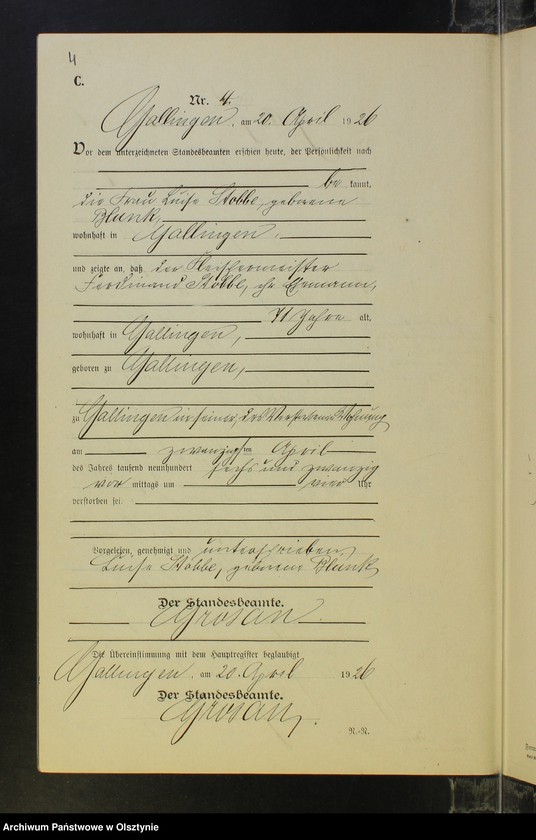 4
C.
Nr. 4.
Gallingen, am 20. April 1926
Vor dem unterzeichneten Standesbeamten erschien heute, der Persönlichkeit nach
be kannt,
die Frau Luise Stobbe, geborene
Blunk,
wohnhaft in Gallingen,
und zeigte an, daß der
Ferdinand Stobbe, ihr Ehemann,
71 Jahre alt,
wohnhaft in Gallingen,
geboren zu Gallingen,
zu Gallingen in seiner, des Verstorbenen Wohnung
am zwanzigsten April
des Jahres tausend neunhundert sechs und zwanzig
vor mittags um vier Uhr
verstorben sei.
Vorgelesen, genehmigt und unterschrieben
Luise Stobbe, geborene Blunk
Der Standesbeamte.
Grosan
Die Übereinstimmung mit dem Hauptregister beglaubigt
Gallingen, am 20. April 1926
Der Standesbeamte.
Grosan.
N.-R.
Archiwum Państwowe w Olsztynie